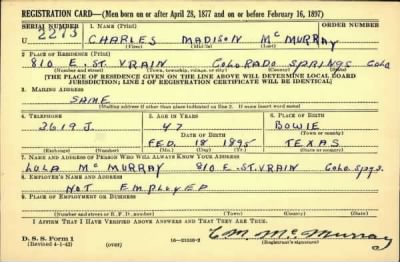 REGISTRATION CARD—(Men born on or after April 28, 1877 and on or before February 16, 1897)
SERIAL NUMBER 1. Name (Print) ORDER NUMBER
U 2273 CHARLES MADISON McMURRAY
(First) (Middle) (Last)
2. Place of Residence (Print)
810 E. ST. VRAIN COLORADO SPRINGS COLO
(Number and street) (Town, township, village, or city) (County) (State)
[THE PLACE OF RESIDENCE GIVEN ON THE LINE ABOVE WILL DETERMINE LOCAL BOARD
JURISDICTION; LINE 2 OF REGISTRATION CERTIFICATE WILL BE IDENTICAL]
3. Mailing Address
SAME
(Mailing address if other than place indicated on line 2. If same insert word same)
4. Telephone 5. Age in Years 6. Place of Birth
3619 J. 47 BOWIE
Date of Birth (Town or county)
FEB. 18 1895 TEXAS
(Exchange) (Number) (Mo.) (Day) (Yr.) (State or country)
7. Name and Address of Person Who Will Always Know Your Address
LOLA McMURRAY 810 E. ST. VRAIN Colo. Spgs.
8. Employer's Name and Address
NOT EMPLOYED
9. Place of Employment or Business
(Number and street or R. F. D. number) (Town) (County) (State)
I Affirm That I Have Verified Above Answers and That They Are True.
D. S. S. Form 1
(Revised 4-1-42) (over) C. M. McMurray
(Registrant's signature)